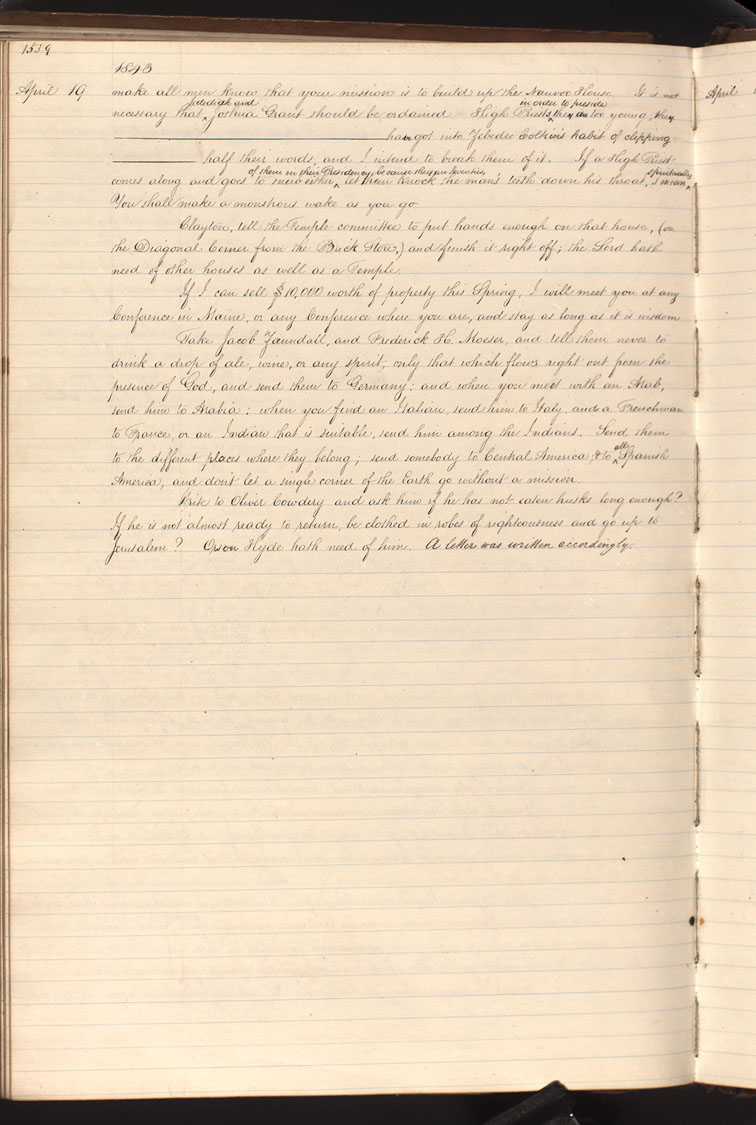 1539
1843
April 19 make all men know that your mission is to build up the Nauvoo House. It is not
Jedediah and in order to preside
necessary that ^ Joshua Grant should be ordained High Priests ^, they are too young, they
have got into Zebedee Coltrin's habit of clipping
half their words, and I intend to break them of it. If a High Priest
of them in their Presidency, because they are Seventies, spiritually
comes along and goes to snub either ^, let them knock the man's teeth down his throat, I mean ^.
You shall make a monstrous wake as you go.
Clayton, tell the Temple committee to put hands enough on that house, (on
the Diagonal Corner from the Brick Store,) and finish it right off; the Lord hath
need of other houses as well as a Temple.
If I can sell $10,000 worth of property this Spring, I will meet you at any
Conference in Maine, or any Conference where you are, and stay as long as it is wisdom
Take Jacob Zaundall, and Frederick H. Moeser, and tell them never to
drink a drop of ale, wine, or any spirit, only that which flows right out from the
presence of God, and send them to Germany; and when you meet with an Arab,
send him to Arabia; when you find an Italian, send him to Italy, and a Frenchman
to France, or an Indian that is suitable, send him among the Indians. Send them
all
to the different places where they belong; send somebody to Central America, & to ^ Spanish
America, and don't let a single corner of the Earth go without a mission.
Write to Oliver Cowdery and ask him if he has not eaten husks long enough?
If he is not almost ready to return, be clothed in robes of righteousness and go up to
Jerusalem? Orson Hyde hath need of him. A letter was written accordingly.
April